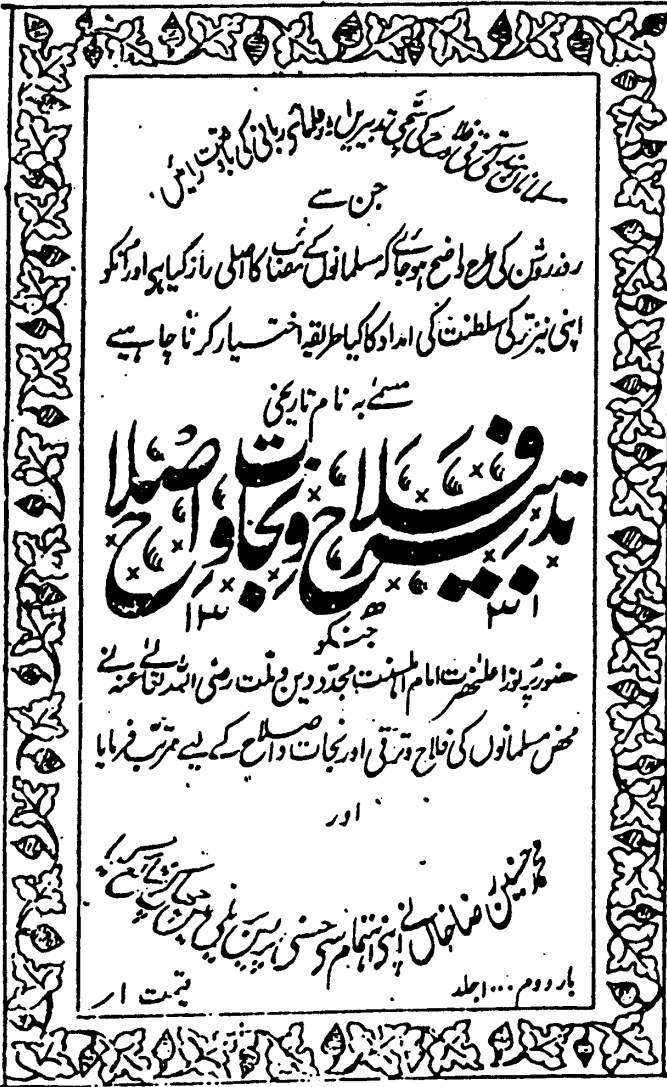 مسلمانان ہند کی ترقی فلاح کی سچی تدبیریں
جن سے
روز روشن کی طرح واضح ہو جائے کہ مسلمانوں کے مصائب کا اصلی راز کیا ہے اور انکو
اپنی نیز ترکی سلطنت کی امداد کا کیا طریقہ اختیار کرنا چاہیے
مسمّٰے بہ نام تاریخی
تدبیر فلاح و نجات و اصلاح
۱۳ ۳۱ھ
جسکو
حضور پرنور اعلٰحضرت امام اہلسنت مجدد دین و ملت رضی اللہ تعالٰے عنہ نے
محض مسلمانوں کی فلاح و ترقی اور نجات و اصلاح کے لیے مرتب فرمایا
اور
محمد حسنین رضا خاں نے اپنے اہتمام سے حسنی پریس بریلی میں چھاپ کر شائع کیا
بار دوم ۱۰۰۰ جلد
قیمت ۱ر